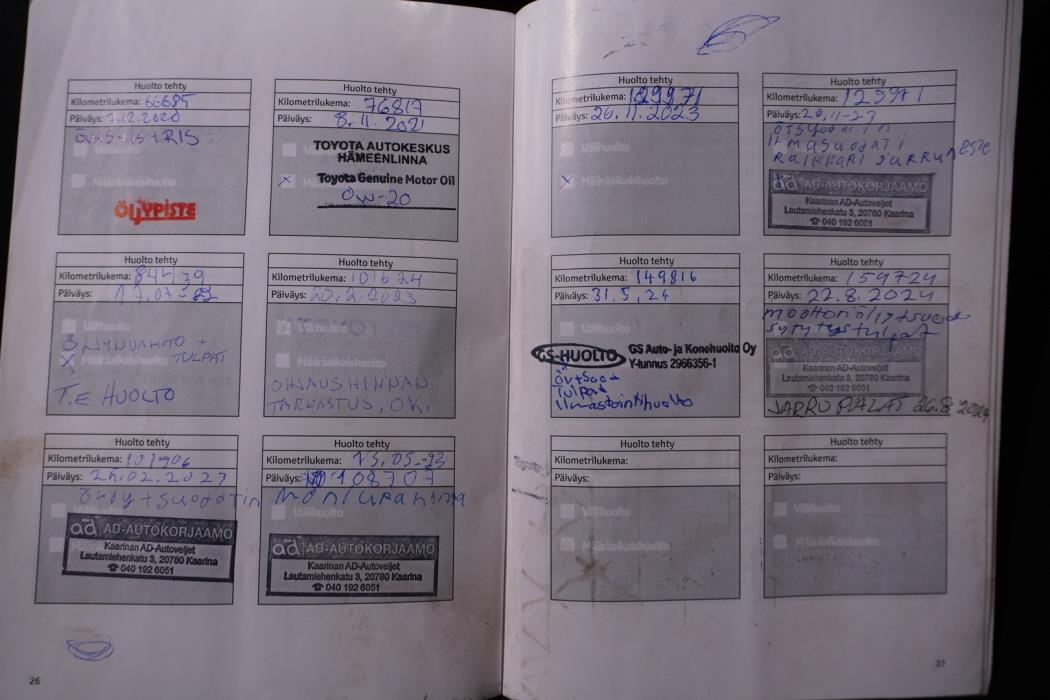 Huolto tehty
Kilometrilukema: 66685
Päiväys: 7.12.2020
Välihuolto
Määräaikaishuolto
ÖLJYPISTE
Huolto tehty
Kilometrilukema: 76817
Päiväys: 8.11.2021
TOYOTA AUTOKESKUS
HÄMEENLINNA
x Toyota Genuine Motor Oil
0W-20
Huolto tehty
Kilometrilukema:
Päiväys: 17.07-22
Välihuolto
ÖLJYNVAIHTO +
x Määräaikaishuolto TULPAT
T.E HUOLTO
Huolto tehty
Kilometrilukema: 101624
Päiväys: 20.2.2023
Välihuolto
Määräaikaishuolto
OHJAUSHINNAN
TARKASTUS, OK.
Huolto tehty
Kilometrilukema: 101906
Päiväys: 02.2023
öljy + suodatin
Välihuolto
ad AD-AUTOKORJAAMO
Kaarinan AD-Autoveljet
Lautamiehenkatu 3, 20780 Kaarina
☎ 040 192 6051
Huolto tehty
Kilometrilukema: 05.-23
Päiväys: 108707
Moniurahihna
Välihuolto
ad AD-AUTOKORJAAMO
Kaarinan AD-Autoveljet
Lautamiehenkatu 3, 20780 Kaarina
☎ 040 192 6051
26
Huolto tehty
Kilometrilukema: 129971
Päiväys: 26.11.2023
Välihuolto
x Määräaikaishuolto
Huolto tehty
Kilometrilukema:
Päiväys: 26.11-23
ilmasuodati
Raikkari Jarruneste
ad AD-AUTOKORJAAMO
Kaarinan AD-Autoveljet
Lautamiehenkatu 3, 20780 Kaarina
☎ 040 192 6051
Huolto tehty
Kilometrilukema: 149816
Päiväys: 31.5.24
Välihuolto
GS-HUOLTO GS Auto- ja Konehuolto Oy
Y-tunnus 2966356-1
öv+suod
Tulpat
Ilmastointihuolto
Huolto tehty
Kilometrilukema: 159724
Päiväys: 22.8.2024
moottoriöljy+suod
sytytystulpat
ad AD-AUTOKORJAAMO
Kaarinan AD-Autoveljet
Lautamiehenkatu 3, 20780 Kaarina
☎ 040 192 6051
JARRUPALAT 26.8.2024
Huolto tehty
Kilometrilukema:
Päiväys:
Välihuolto
Määräaikaishuolto
Huolto tehty
Kilometrilukema:
Päiväys:
Välihuolto
Määräaikaishuolto
27